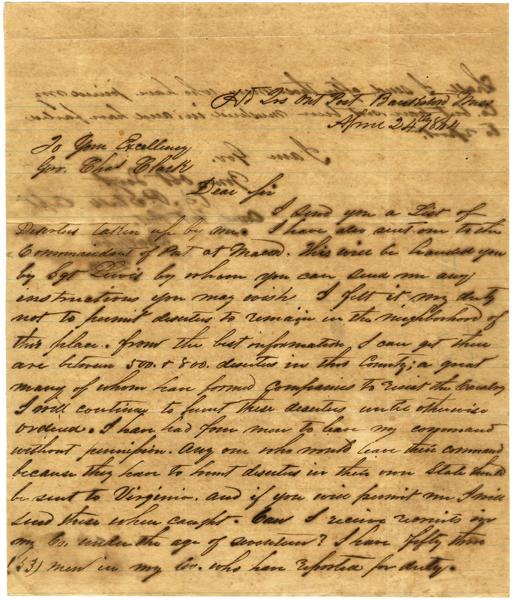 Hd Qrs Out Post Bankston Miss
April 24th 1864
To Your Excellency
Gov. Chas Clark
Dear Sir
I send you a List of
Deserters taken up by me. I have also sent one to the
Commandant of Post at Macon. This will be handed you
by Sgt Lewis by whom you can send me any
instructions you may wish. I felt it my duty
not to permit deserters to remain in the neighborhood of
this place. from the best information, I can get there
are between 500. & 800. deserters in this County; a great
many of whom have formed Companies to resist the Cavalry
I will continue to hunt these deserters untill otherwise
ordered. I have had four men to leave my command
without permission. Any one who would leave their command
because they have to hunt deserters in their own State should
be sent to Virginia. and if you will permit me I will
send these when caught. Can I receive recruits in
my Co. under the age of seventeen? I have fifty three
(53) men in my Co. who have reported for duty.